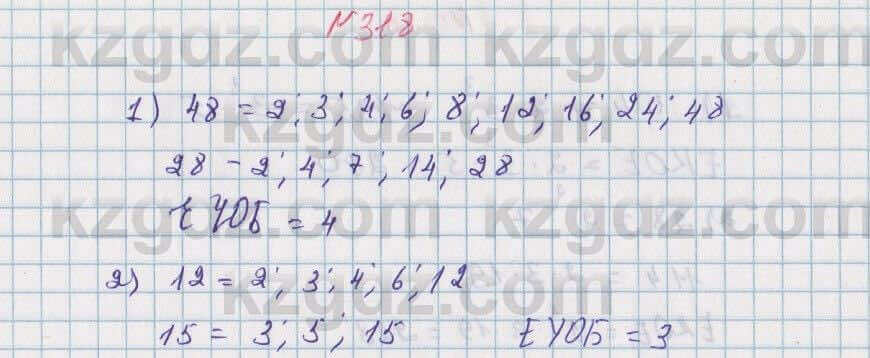 №318
1) 48 = 2; 3; 4; 6; 8; 12; 16; 24; 48
28 - 2; 4; 7; 14; 28
ЕҮОБ = 4
2) 12 = 2; 3; 4; 6; 12
15 = 3; 5; 15 ЕҮОБ = 3
kzgdz.com kzgdz.com
kzgdz.com kzgdz.com
kzgdz.com kzgdz.com
kzgdz.com kzgdz.com